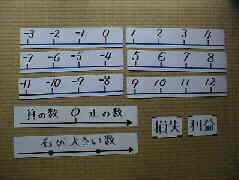 -3 -2 -1 0 1 2 3 4
-7 -6 -5 -4 5 6 7 8
-11 -10 -9 -8 9 10 11 12
負の数 0 正の数
右が大きい数
損失 利益